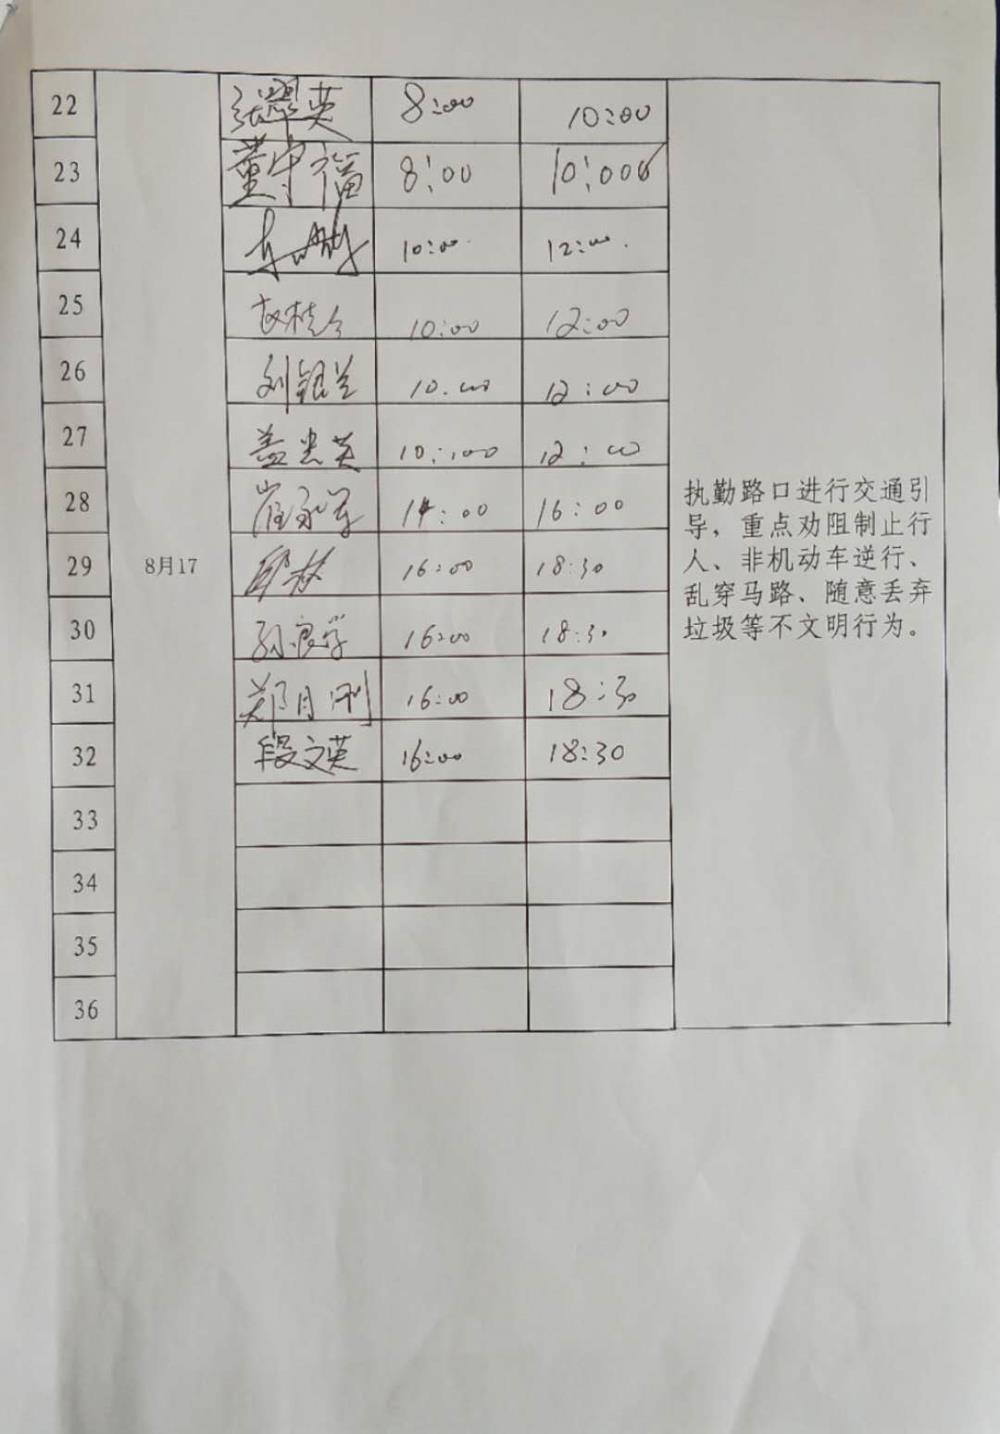 22 张翠英 8:00 10:00
23 董守福 8:00 10:00
24 10:00 12:00
25 10:00 12:00
26 刘银兰 10:00 12:00
27 盖忠英 10:00 12:00
28 崔永军 14:00 16:00
29 8月17 16:00 18:30
30 孙良学 16:00 18:30
31 郑月刚 16:00 18:30
32 段文英 16:00 18:30
33
34
35
36
执勤路口进行交通引
导，重点劝阻制止行
人、非机动车逆行、
乱穿马路、随意丢弃
垃圾等不文明行为。